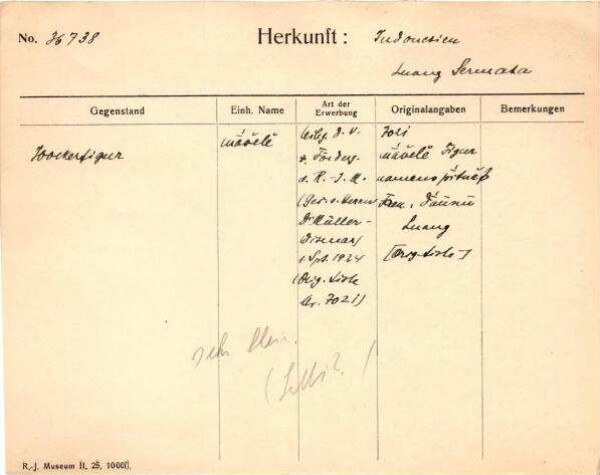 No. 36738
Herkunft: Indonesien
Luang Sermata
Gegenstand
Einh. Name
Art der Erwerbung
Originalangaben
Bemerkungen
Hockerfigur
māvĕlĕ
Leihg. d. V.
z. Förderg.
d. R.-J. M.
(Ges. v. Herrn
Dr Müller-
Wismar)
1 Spt. 1924
(Orig. Liste
Nr. 7021)
7021
māvĕlĕ Figur
namens
Frau,
Luang
[Orig. Liste]
sehr klein.
R.-J. Museum II. 25. 10000.